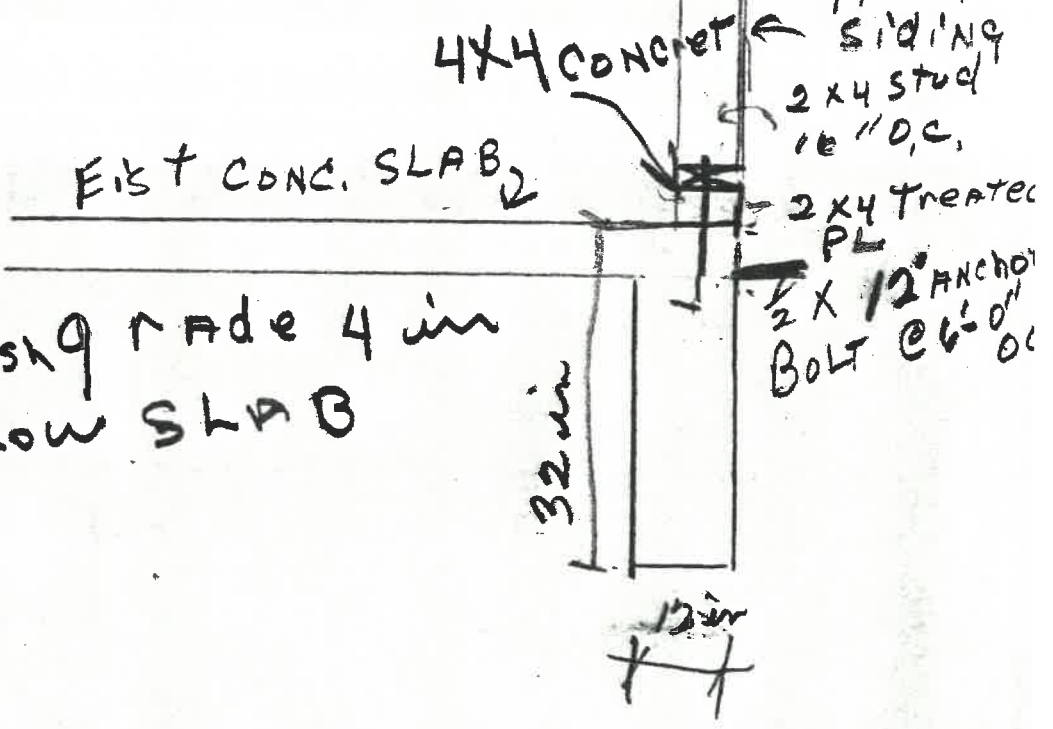 4X4 CONCRET
SIDING
2 X 4 STUD
16 " O.C.
EIST CONC. SLAB
2 X4 TREATED
PL
1/2 X 12" ANCHOR
BOLT @ 6'-0" OC
GRADE 4 in
SLAB
32 in
12 in